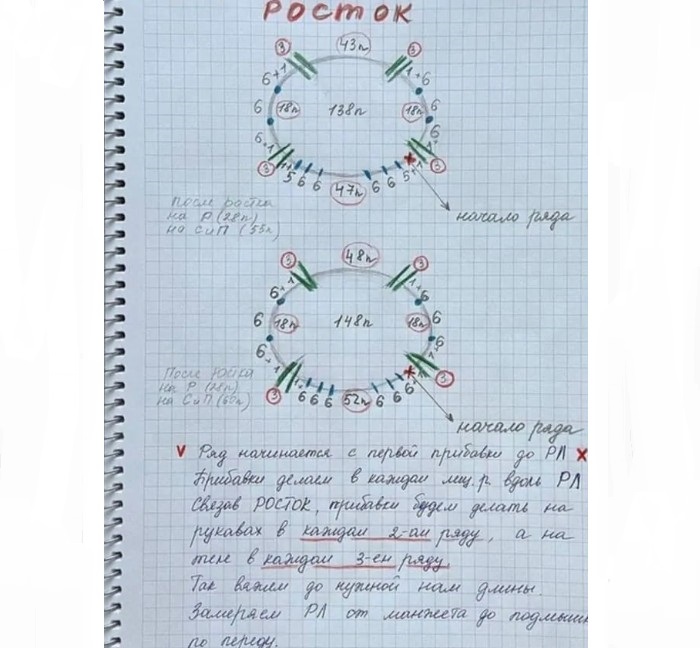 РОСТОК
3 43п 3
6+1 1+6
6 18п 138п 18п 6
6+1 6
3 1 5 6 6 47п 6 6 5+1 3
После ростка
на Р (28п)
на СиП (53п)
начало ряда
3 48п 3
6+1 1+6
6 18п 148п 18п 6
6+1 6
3 1 6 6 6 52п 6 6 6+1 3
После
на Р (28п)
на СиП (60п)
начало ряда
v Ряд начинается с первой прибавки до РЛ x
Прибавки делаем в каждом лиц.р. вдоль РЛ
Связав РОСТОК, прибавки будем делать на
рукавах в каждом 2-ом ряду, а на
теле в каждом 3-ем ряду.
Так вяжем до нужной нам длины.
Замеряем РЛ от манжета до подмыш
по переду.